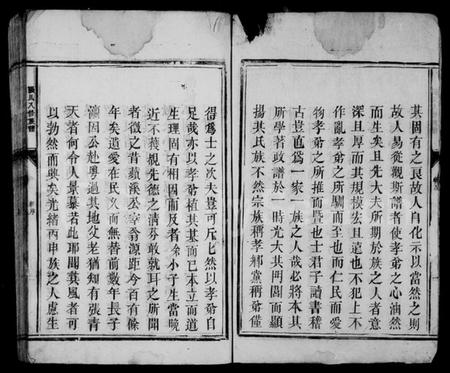 其固有之良故人自化示以當然之則
故人易從觀斯譜者使孝弟之心油然
而生矣且先大夫所期於族之人者意
深且厚而其規模宏且遠也不犯上不
作亂孝弟之所馴而至也而仁民而愛
物孝弟之所推而曁也士君子讀書稽
古豈直爲一家一族之人哉必將本其
所學著政譜於一時光大其門閭而顯
揚其氏族不然宗族稱孝鄉黨稱弟僅
得爲士之次夫豈可斥乎然以孝弟自
足哉亦以孝弟植其基而已本立而道
生理固有相因而及者矣小子生當晚
近不獲親先德之清芬敢就耳之所聞
者徵之昔蘋溪公宰翁源距今百有餘
年矣遺愛在民久而無替前數年長子
瀛因公赴粵過其地父老猶知有張青
天者何令人景慕若此耶聞其風者可
以勃然而興矣光緒丙申族之人慮生